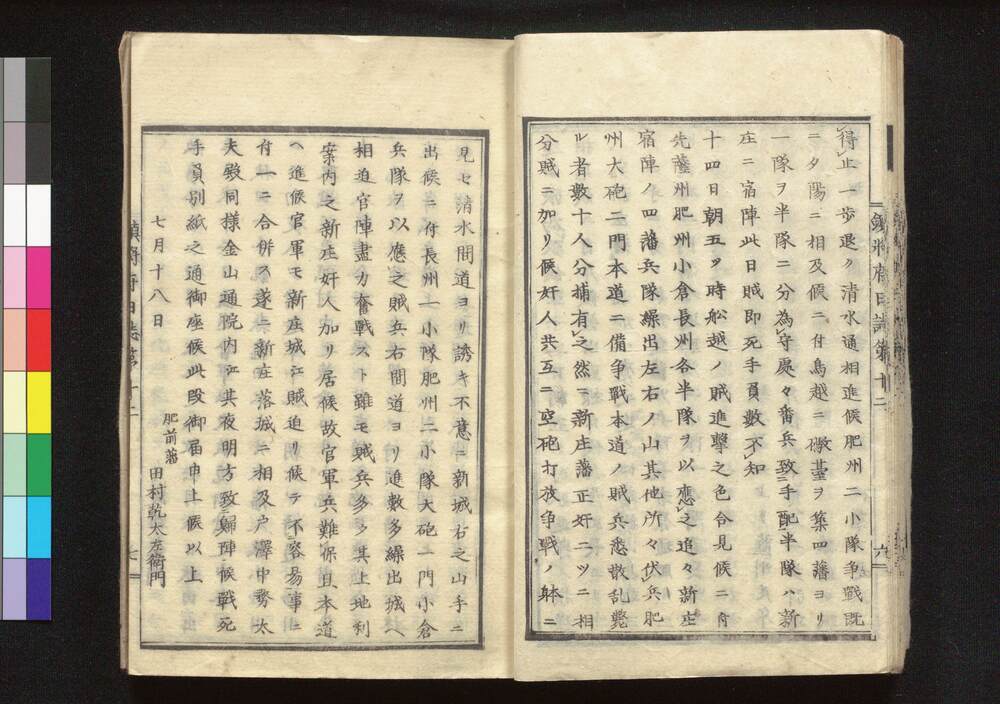 鎮将府日誌第十二
六
得止一歩退ク清水通相進候肥州二小隊争戦既
ニ夕陽ニ相及候ニ付鳥越ニ礮䑓ヲ築四藩ヨリ
一隊ヲ半隊ニ分為守處々番兵致手配半隊ハ新
庄ニ宿陣此日賊即死手負數不知
十四日朝五ツ時舩越ノ賊進撃之色合見候ニ付
先薩州肥州小倉長州各半隊ヲ以應之追々新庄
宿陣ノ四藩兵隊繰出左右ノ山其他所々伏兵肥
州大砲二門本道ニ備争戦本道ノ賊兵悉散乱斃
ル者數十人分捕有之然ニ新庄藩正奸二ツニ相
分賊ニ加リ候奸人共互ニ空砲打放争戦ノ躰ニ
見セ清水間道ヨリ誘キ不意ニ新城右之山手ニ
出候ニ付長州一小隊肥州二小隊大砲一門小倉
兵隊ヲ以應之賊兵右間道ヨリ進數多繰出城ヘ
相迫官陣盡力奮戰スト雖モ賊兵多ク其上地利
案内之新庄奸人加リ居候故官軍兵難保且本道
ヘ進候官軍モ新庄城江賊迫リ候テハ不容易事ニ
付一ニ合併ス遂ニ新庄落城ニ相及戸澤中務太
夫殿同様金山通院内江其夜明方致歸陣候戰死
手負別紙之通御座候此段御届申上候以上
七月十八日
肥前藩
田村乾太左衛門
鎮将府日誌第十二
七